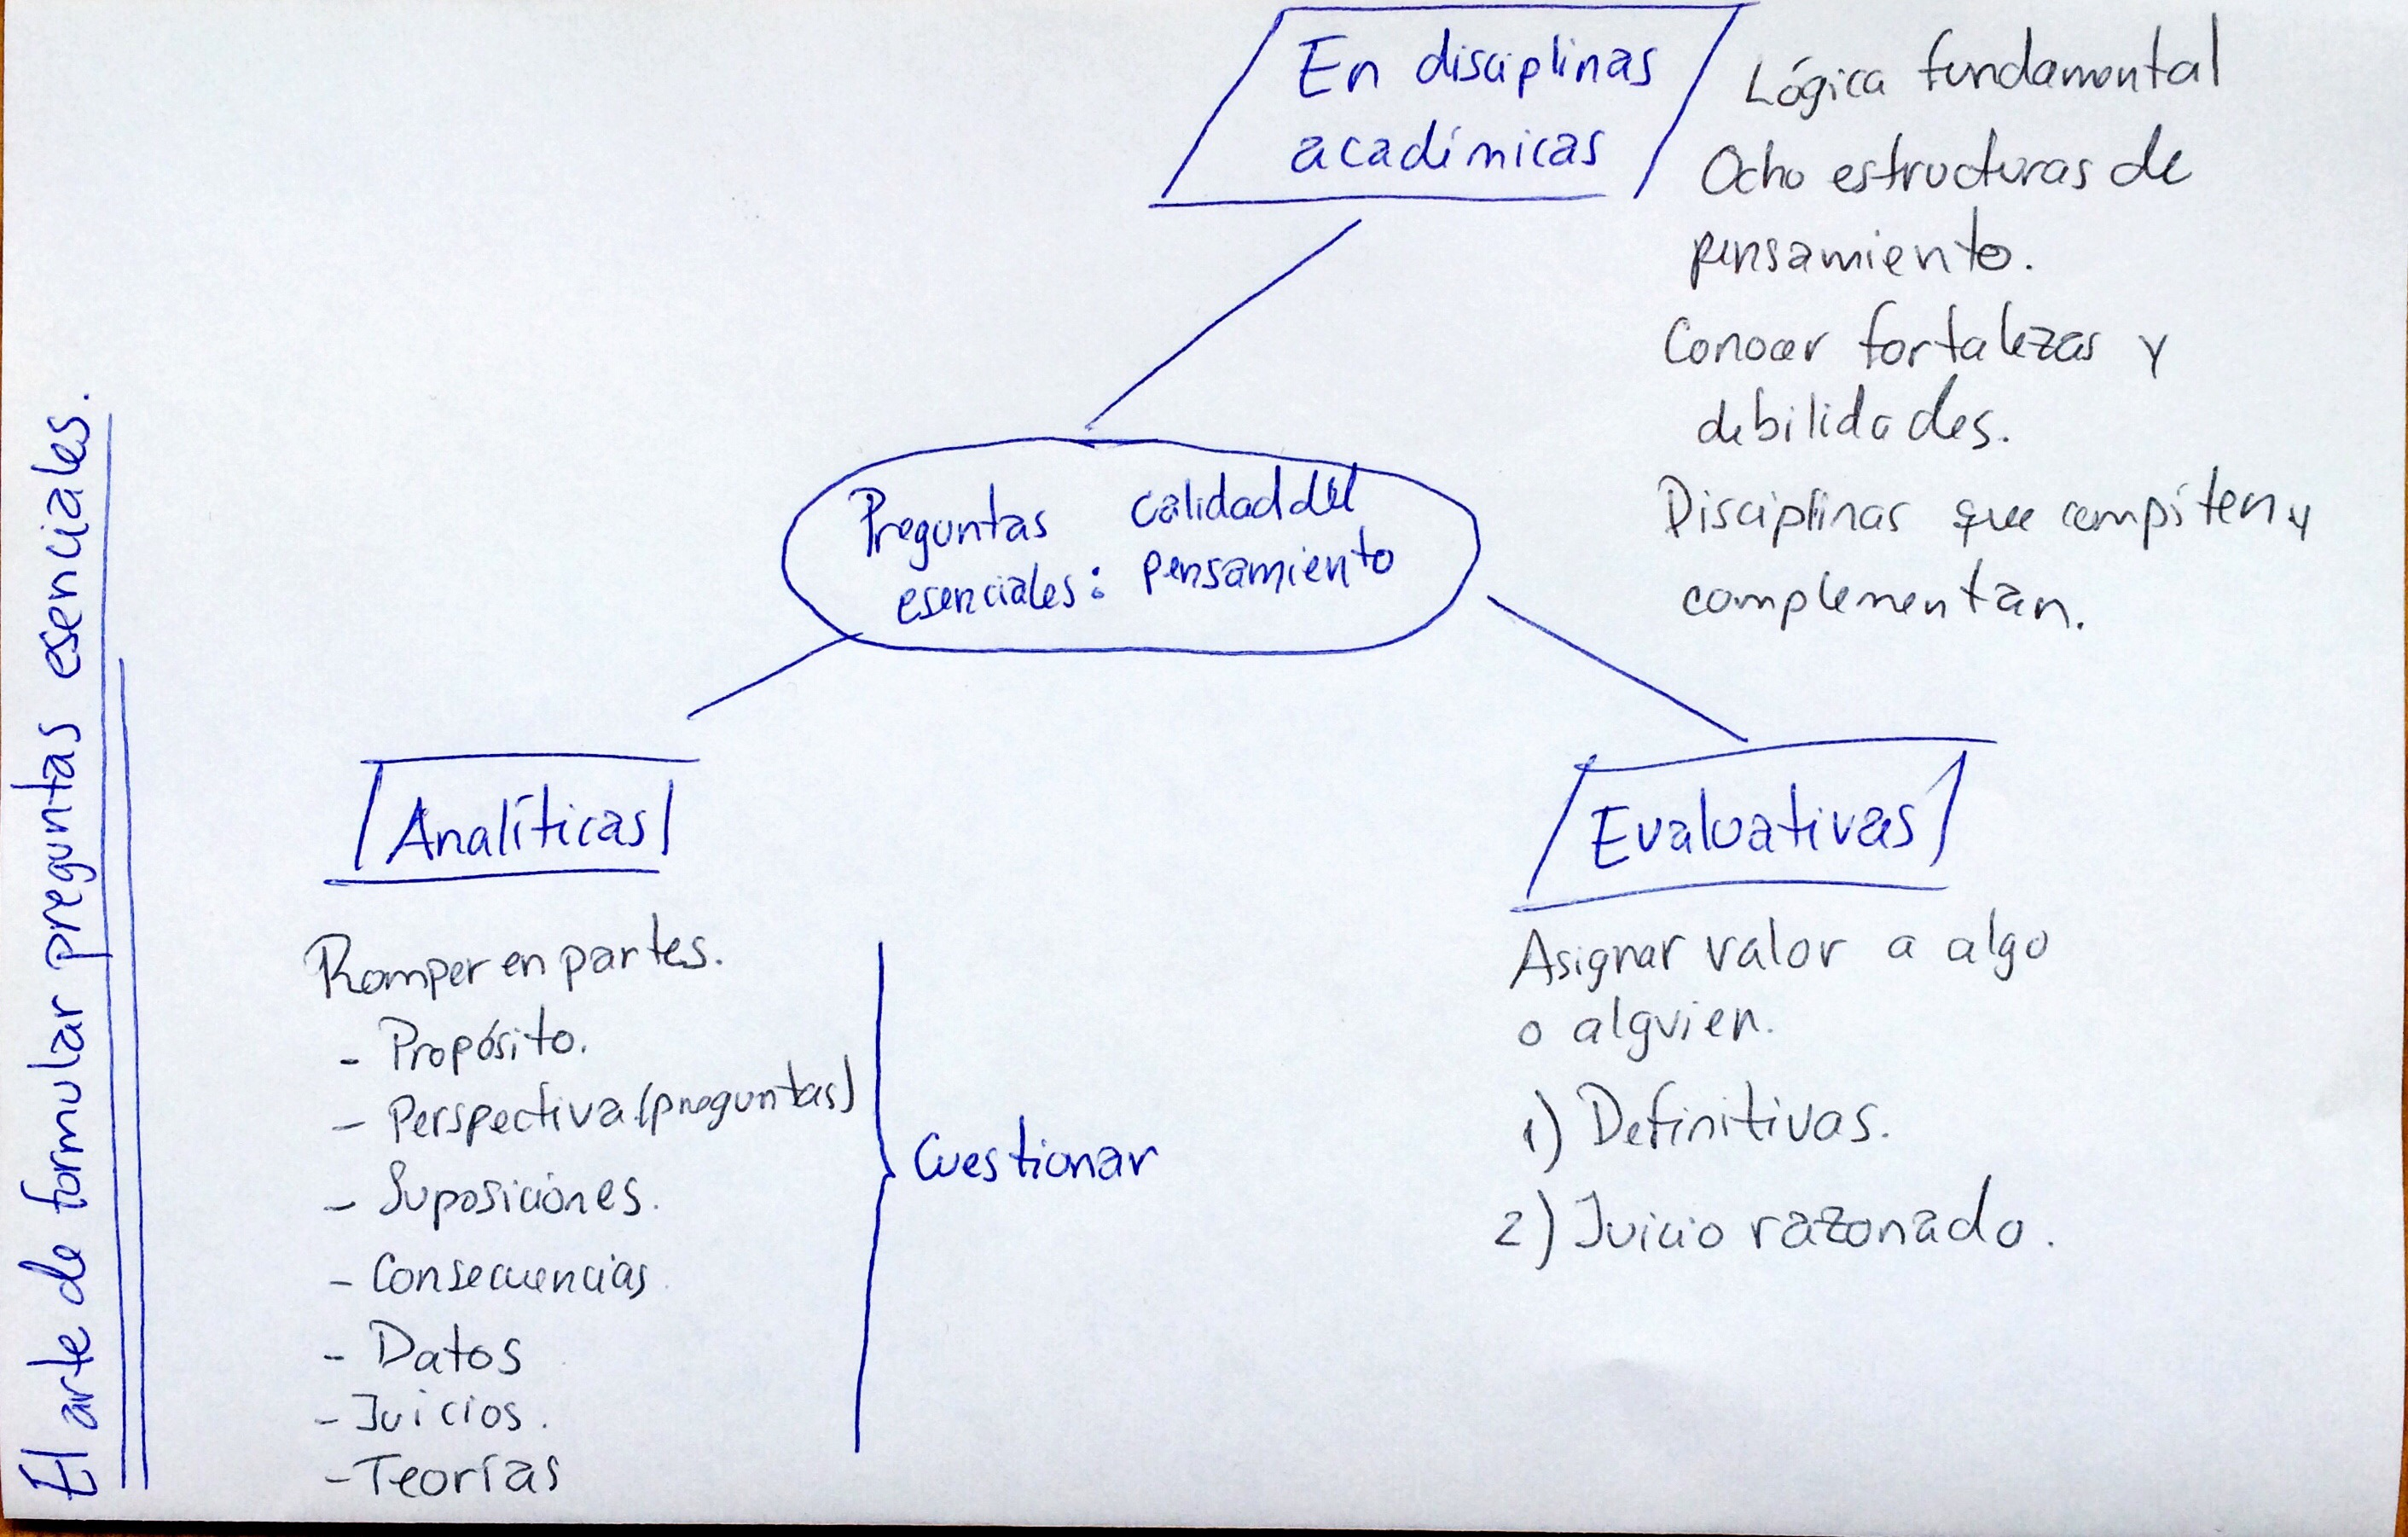 El arte de formular preguntas esenciales.
En disciplinas
académicas
Lógica fundamental
Ocho estructuras de
pensamiento.
Conocer fortalezas y
debilidades.
Disciplinas que compíten y
complementan.
Preguntas
esenciales:
calidad del
pensamiento
Analíticas
Romper en partes.
- Propósito.
- Perspectiva (preguntas)
- Suposiciones.
- Consecuencias
- Datos
- Juicios.
- Teorías
Cuestionar
Evaluativas
Asignar valor a algo
o alguien.
1) Definitivas.
2) Juicio razonado.